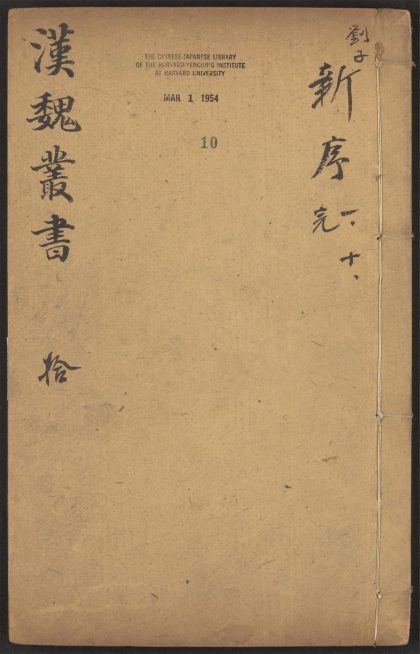 劉子
新序 一、十、
完
THE CHINESE-JAPANESE LIBRARY
OF THE HARVARD-YENCHING INSTITUTE
AT HARVARD UNIVERSITY
MAR 1 1954
10
漢魏叢書 拾